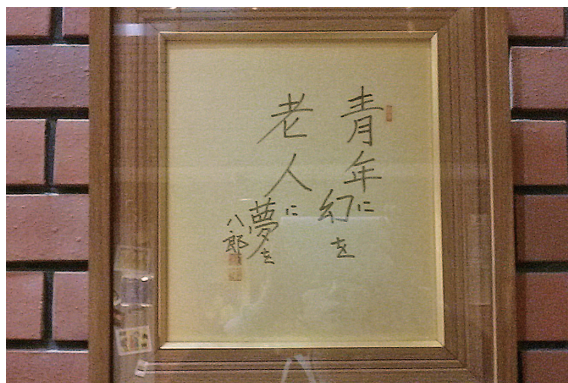 青年に幻を
老人に夢を
八郎